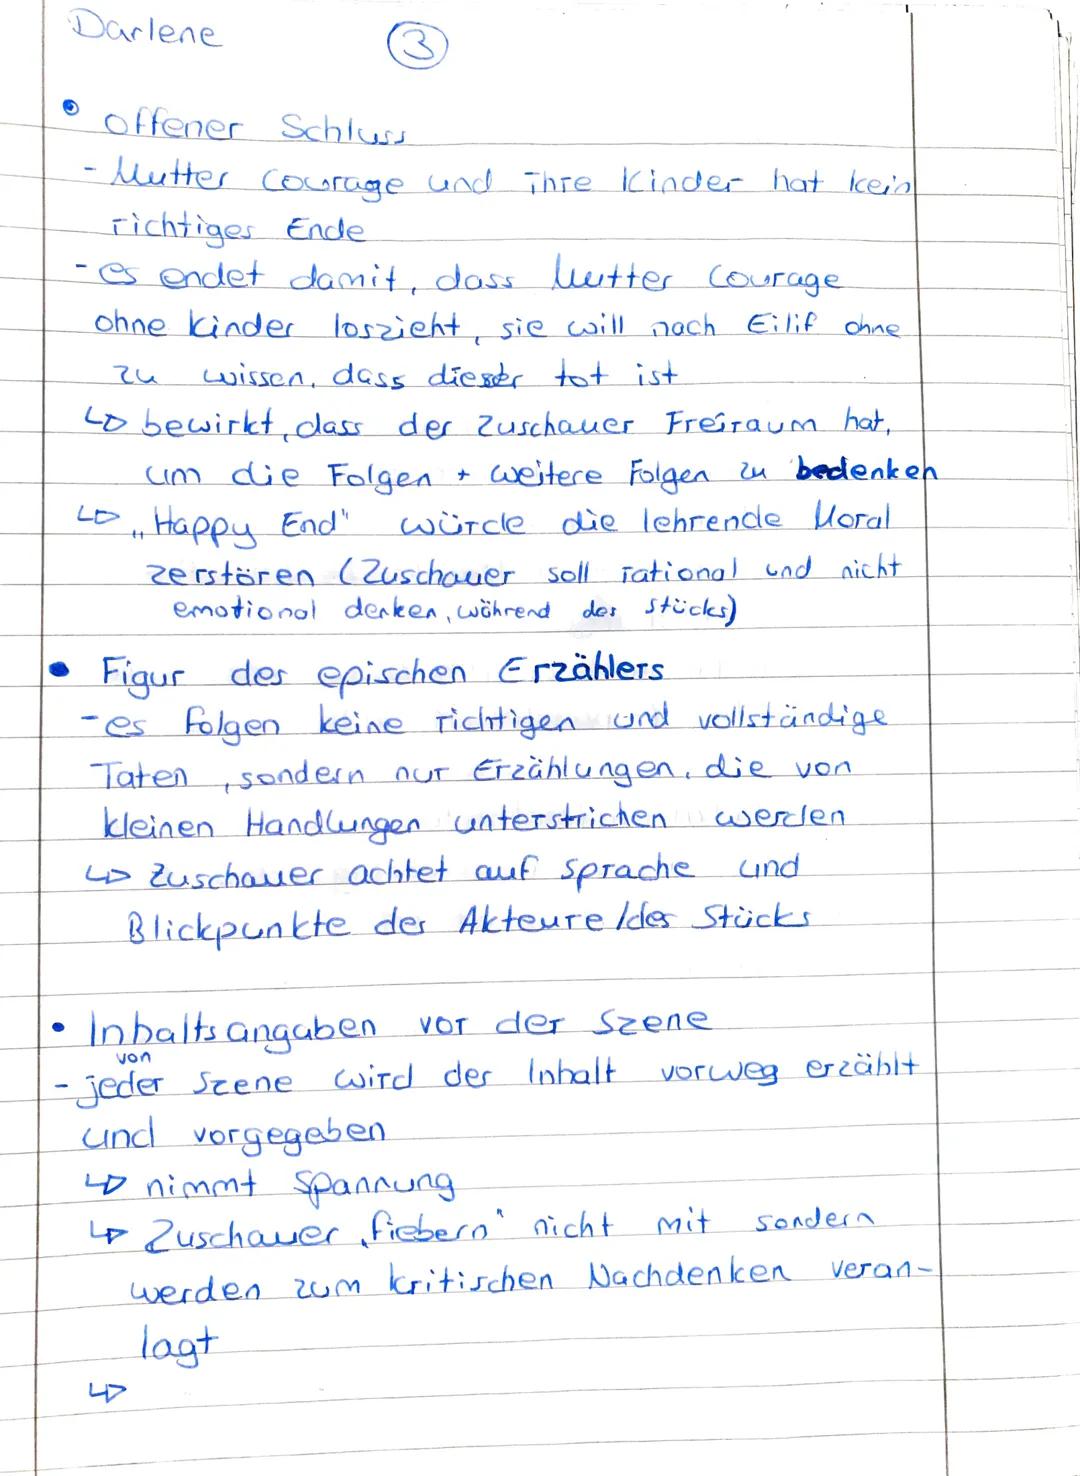 Darlene ③
• offener Schluss
- Mutter Courage und ihre Kinder hat kein
richtiges Ende
- es endet damit, dass Mutter Courage
ohne Kinder loszieht, sie will nach Eilif ohne
zu wissen, dass dieser tot ist
↳ bewirkt, dass der Zuschauer Freiraum hat,
um die Folgen + weitere Folgen zu bedenken
↳ „Happy End" würde die lehrende Moral
zerstören (Zuschauer soll rational und nicht
emotional denken, während des Stücks)
• Figur des epischen Erzählers
- es folgen keine richtigen und vollständige
Taten, sondern nur Erzählungen, die von
kleinen Handlungen unterstrichen werden
↳ Zuschauer achtet auf Sprache und
Blickpunkte der Akteure/des Stücks
• Inhaltsangaben vor der Szene
von
- jeder Szene wird der Inhalt vorweg erzählt
und vorgegeben
↳ nimmt Spannung
↳ Zuschauer „fiebern" nicht mit sondern
werden zum kritischen Nachdenken veran-
lagt
↳